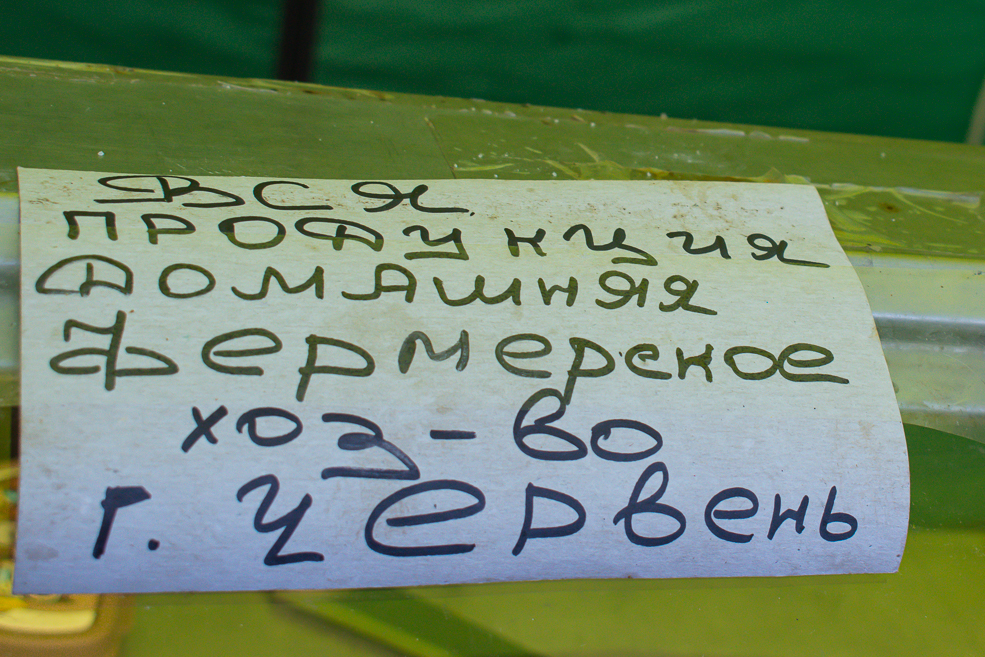 ВСЯ
ПРОДУКЦИЯ
ДОМАШНЯЯ
Фермерское
хоз-во
г. Червень